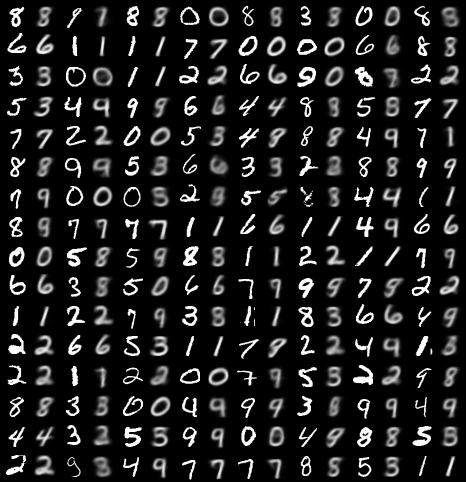 8 8 9 7 8 8 0 0 8 8 3 8 0 0 8 3
6 6 1 1 1 1 7 7 0 0 0 0 6 6 8 8
3 3 0 0 1 1 2 2 6 6 9 0 8 9 2 2
5 3 4 9 9 9 6 6 4 4 8 8 5 8 7 7
7 7 2 2 0 0 5 3 4 9 8 8 4 9 7 1
8 8 9 9 5 3 6 6 3 3 2 2 8 8 9 9
7 9 0 0 0 5 2 9 5 5 8 8 4 4 1 1
8 9 7 7 7 7 1 1 6 6 1 1 4 9 6 6
0 0 5 8 5 9 8 8 1 1 2 2 1 1 7 9
6 6 3 8 5 0 6 6 7 9 9 9 7 9 2 2
1 1 2 2 7 9 3 8 1 1 8 3 6 6 4 9
2 2 6 6 5 3 1 1 7 9 2 2 4 9 1 3
2 2 1 1 2 2 0 0 7 9 5 3 2 2 9 8
8 8 3 3 0 0 4 9 9 9 3 8 9 9 4 9
4 4 3 2 5 3 9 9 0 0 4 9 8 8 5 3
2 2 9 8 4 9 7 7 7 7 8 8 5 3 1 1